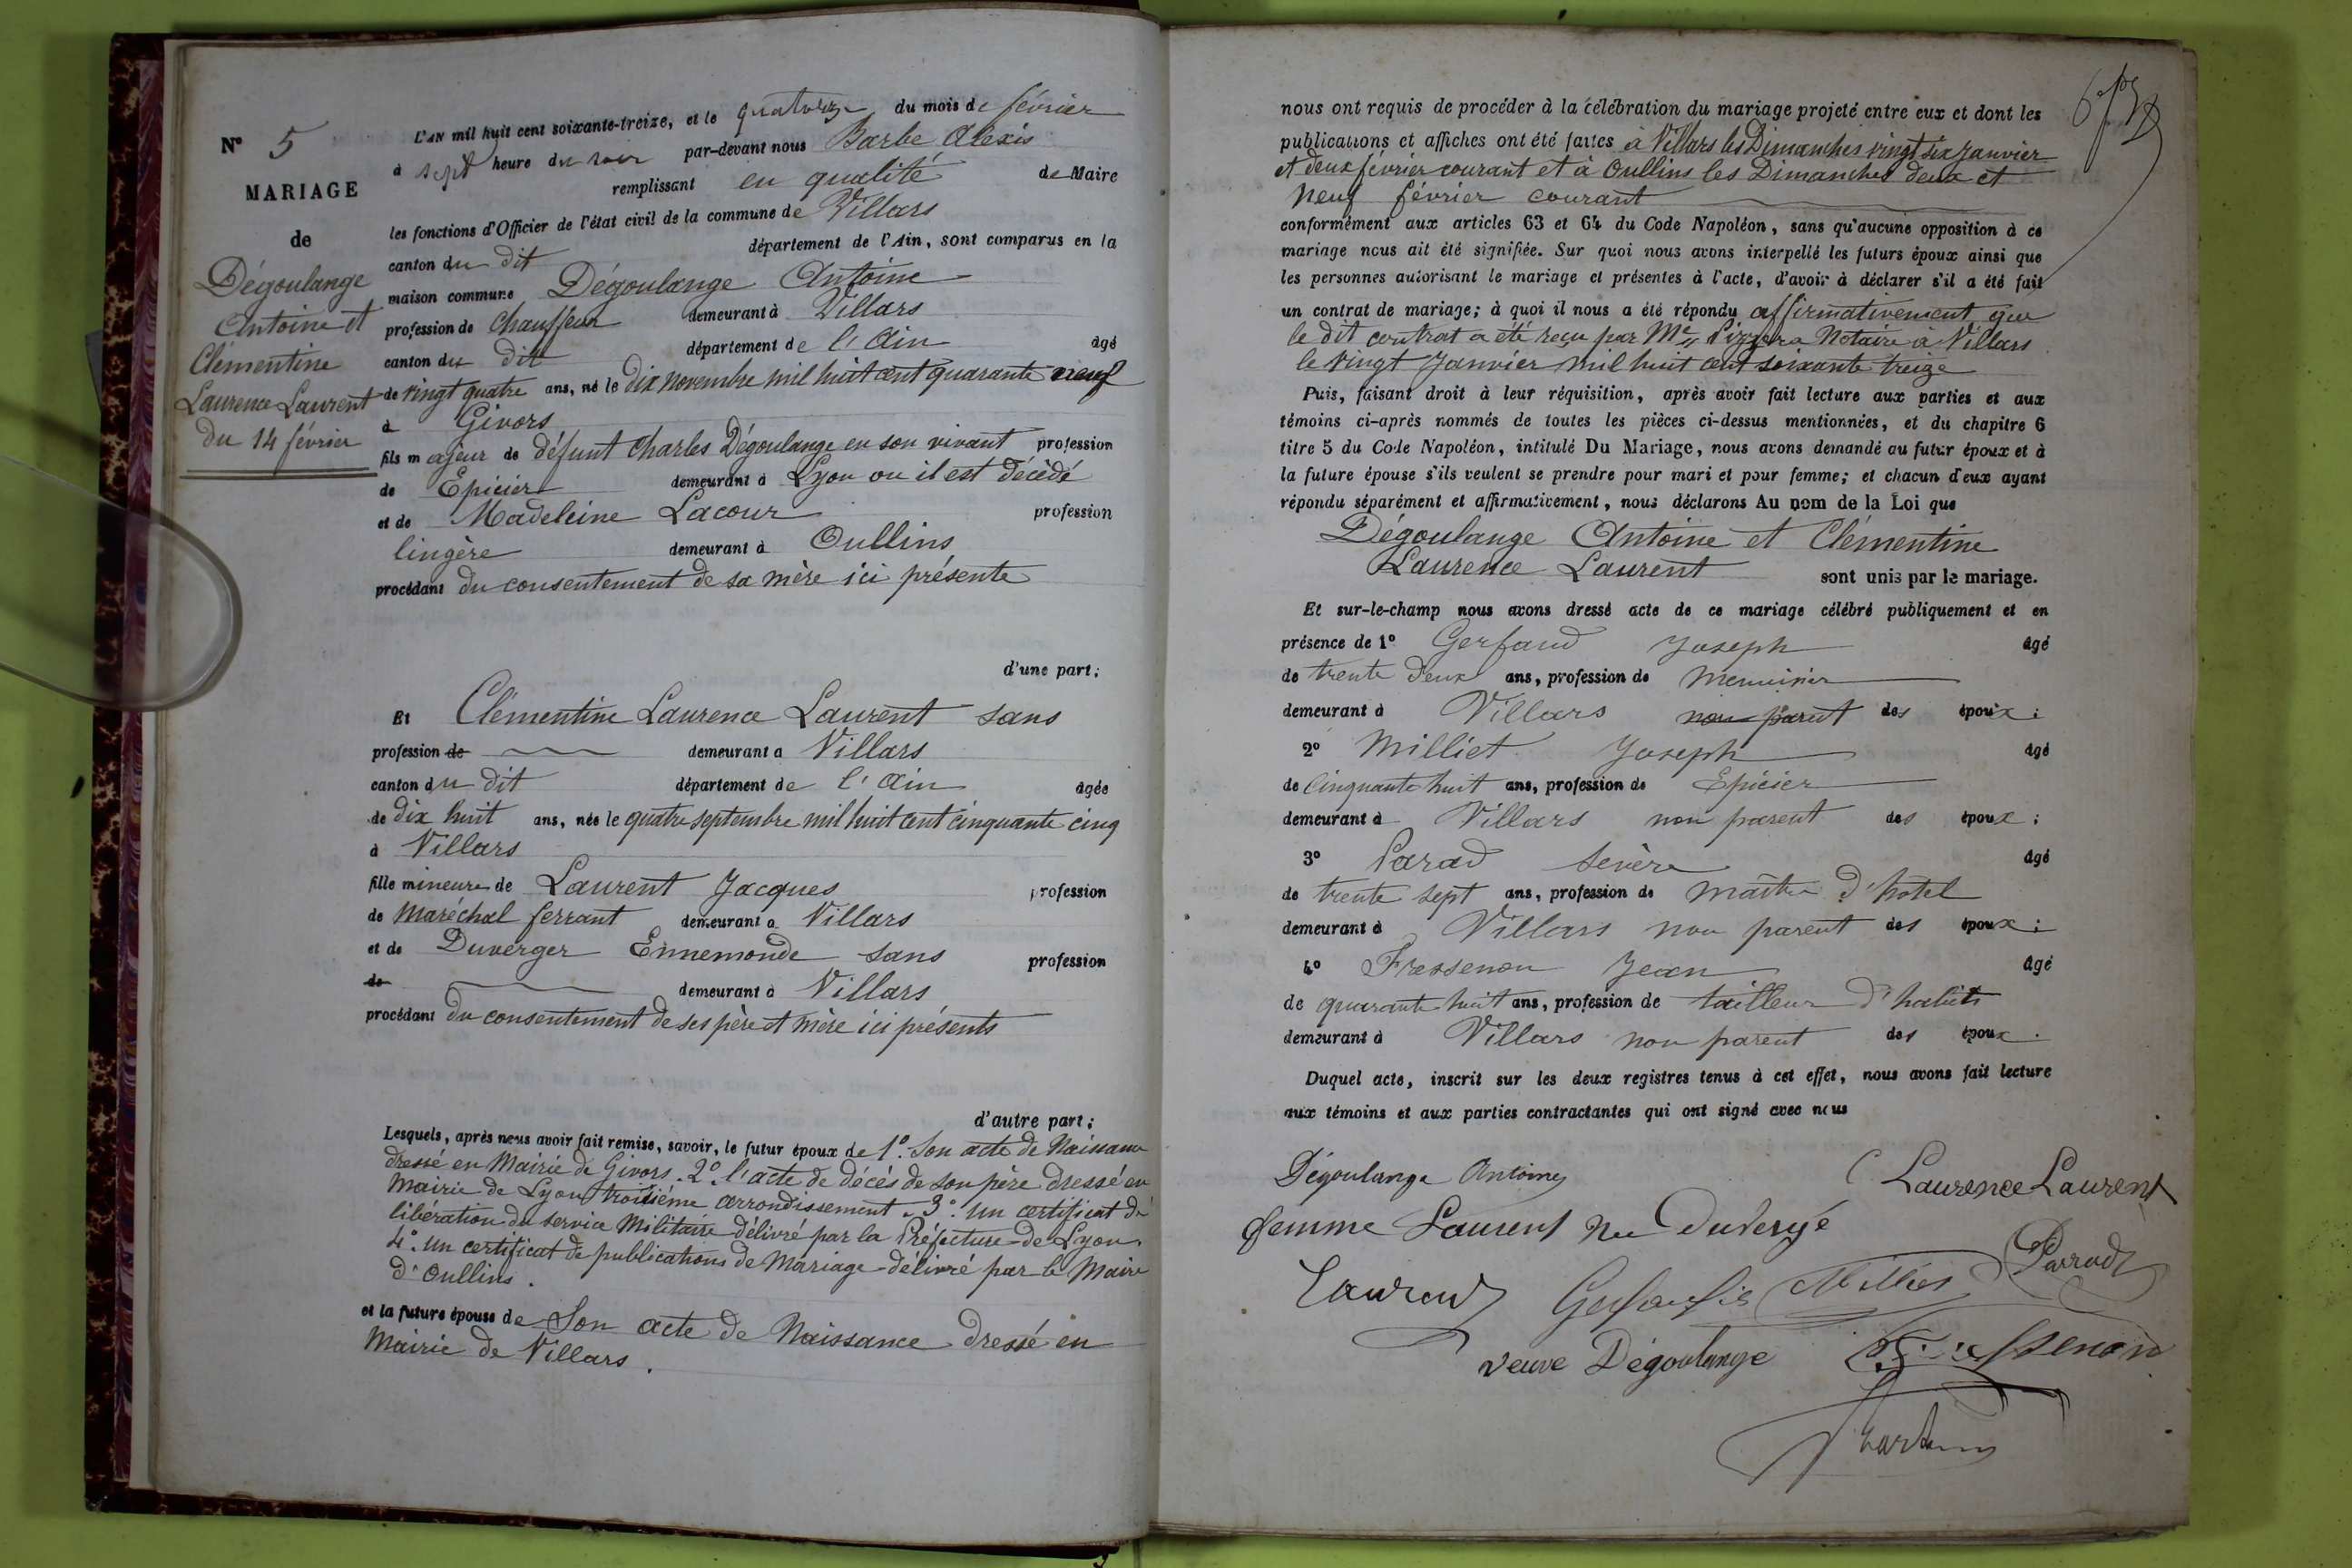 N° 5
MARIAGE
de
Dégoulange
Antoine et
Clémentine
Laurence Laurent
du 14 février
L'AN mil huit cent soixante-treize, et le quatorze du mois de février
à sept heure du soir par-devant nous Barbe Alexis
remplissant en qualité de Maire
les fonctions d'Officier de l'état civil de la commune de Villars
canton du dit département de l'Ain, sont comparus en la
maison commune Dégoulange Antoine
profession de Chauffeur demeurant à Villars
canton du dit département de l'Ain âgé
de vingt quatre ans, né le dix novembre mil huit cent quarante neuf
à Givors
fils majeur de défunt Charles Dégoulange en son vivant profession
de Epicier demeurant à Lyon ou il est décédé
et de Madeleine Lacour profession
lingère demeurant à Oullins
procédant du consentement de sa mère ici présente
d'une part;
Et Clémentine Laurence Laurent sans
profession de demeurant à Villars
canton du dit département de l'Ain âgée
de dix huit ans, née le quatre septembre mil huit cent cinquante cinq
à Villars
fille mineure de Laurent Jacques profession
de Maréchal ferrant demeurant à Villars
et de Duverger Ennemonde sans profession
de demeurant à Villars
procédant du consentement de ses père et mère ici présents
d'autre part;
Lesquels, après nous avoir fait remise, savoir, le futur époux de 1° Son acte de Naissance
dressé en Mairie de Givors. 2° l'acte de décés de son père dressé en
Mairie de Lyon troisième arrondissement. 3° Un certificat de
libération du service Militaire délivré par la Préfecture de Lyon.
4° Un certificat de publications de Mariage délivré par le Maire
d'Oullins.
et la future épouse de Son acte de Naissance dressé en
Mairie de Villars.
nous ont requis de procéder à la célébration du mariage projeté entre eux et dont les
publications et affiches ont été faites à Villars les Dimanches vingt six Janvier
et deux février courant et à Oullins les Dimanches deux et
neuf février courant
conformément aux articles 63 et 64 du Code Napoléon, sans qu'aucune opposition à ce
mariage nous ait été signifiée. Sur quoi nous avons interpellé les futurs époux ainsi que
les personnes autorisant le mariage et présentes à l'acte, d'avoir à déclarer s'il a été fait
un contrat de mariage; à quoi il nous a été répondu affirmativement que
le dit contrat a été reçu par Me Notaire à Villars
le vingt Janvier mil huit cent soixante treize
Puis, faisant droit à leur réquisition, après avoir fait lecture aux parties et aux
témoins ci-après nommés de toutes les pièces ci-dessus mentionnées, et du chapitre 6
titre 5 du Code Napoléon, intitulé Du Mariage, nous avons demandé au futur époux et à
la future épouse s'ils veulent se prendre pour mari et pour femme; et chacun d'eux ayant
répondu séparément et affirmativement, nous déclarons Au nom de la Loi que
Dégoulange Antoine et Clémentine
Laurence Laurent sont unis par le mariage.
Et sur-le-champ nous avons dressé acte de ce mariage célébré publiquement et en
présence de 1° Gerfaud Joseph âgé
de trente deux ans, profession de Menuisier
demeurant à Villars non parent des époux;
2° Milliet Joseph âgé
de Cinquante huit ans, profession de Epicier
demeurant à Villars non parent des époux;
3° Parad Sevère âgé
de trente sept ans, profession de maître d'hotel
demeurant à Villars non parent des époux;
4° Fressenon Jean âgé
de quarante huit ans, profession de tailleur d'habits
demeurant à Villars non parent des époux.
Duquel acte, inscrit sur les deux registres tenus à cet effet, nous avons fait lecture
aux témoins et aux parties contractantes qui ont signé avec nous
Dégoulange Antoine C Laurence Laurent
femme Laurent Née Duvergé
Laurent Milliet Parrad
veuve Dégoulange Fressenon